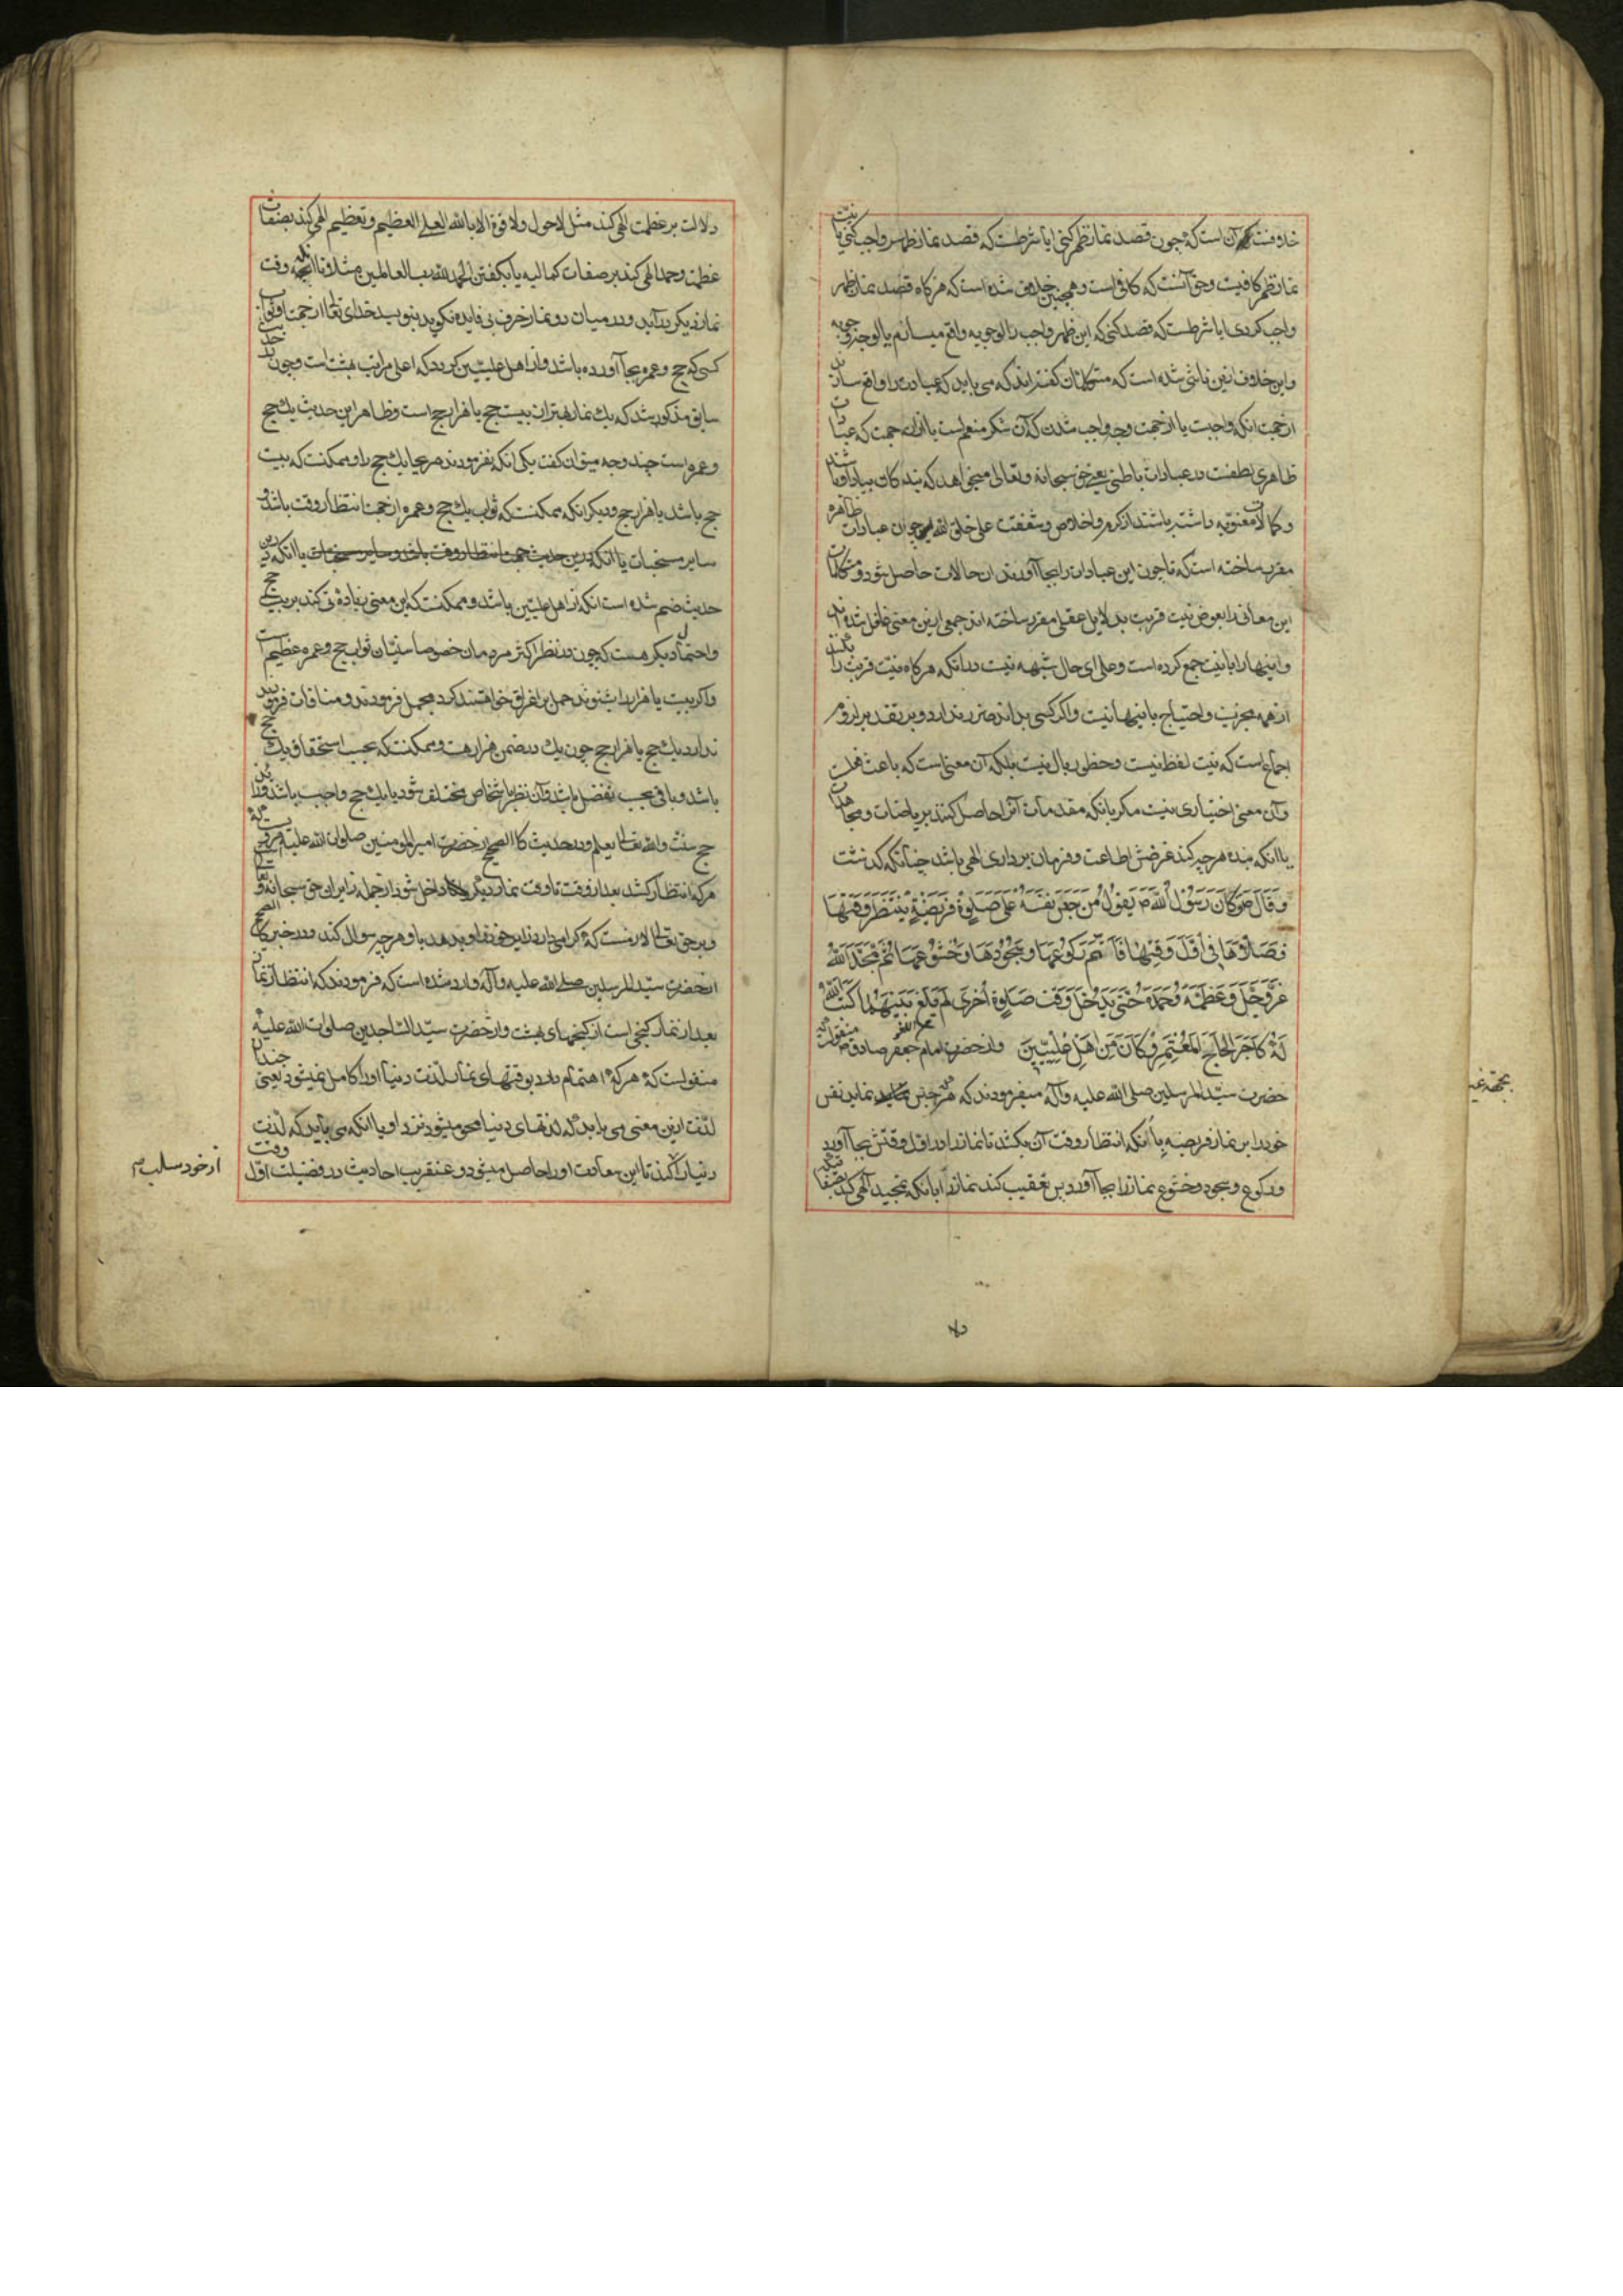 خلافست آن است که چون قصد نماز ظهر کنی ایا شرطست که قصد نماز ظهر واجب کنی یا نیت
نماز ظهر کافیست و حق آنست که کافی است و همچنین خلاف شده است که هرگاه قصد نماز ظهر
واجب کردی ایا شرطست که قصد کنی که این ظهر واجب را لوجوبه واقع میسازم یا لوجه وجوبه
و این خلاف ازین ناشی شده است که متکلمان گفته‌اند که می باید که عبادت را واقع سازند
از جهت انکه واجبست یا از جهت وجه واجب شدن که آن شکر منعم است یا از ان جهت که عبادات
ظاهری لطفست در عبادات باطنی یعنی حق سبحانه و تعالی میخواهد که بندکان بیاد او باشند
و کمالات معنویه داشته باشند از کرم و اخلاص و شفقت علی خلق الله چون عبادات ظاهره
مقرر ساخته است که تا چون این عبادات را بجا آورند ان حالات حاصل شود و متکلمان
این معانی را بعوض نیت قربت بدلایل عقلی مقرر ساخته اند جمعی ازین معنی غافل شده اند
و اینها را با نیت جمع کرده است و علی ای حال شبهه نیست در آنکه هرگاه نیت قربت را بکند
از همه مجزیست و احتیاج باینها نیست و اکر کسی بداند ضرر ندارد و بر تقدیر لزوم
اجماع است که نیت لفظ نیست و خطور ببال نیست بلکه آن معنی است که باعث فعلست
و آن معنی اختیاری نیست مکر بانکه مقدمات آنرا حاصل کنند بریاضات و مجاهدات
یا انکه بنده هر چه کند غرضش اطاعت و فرمان برداری الهی باشد چنانکه گذشت
وَقَالَ ص وَکَانَ رَسُولُ اللّهِ ص یَقُولُ مَنْ حَبَسَ نَفْسَهُ عَلَی صَلٰوةِ فَرِیضَةٍ یَنْتَظِرُ وَقْتَهَا
فَصَلّاهَا فِی اَوَّلِ وَقْتِهَا فَاَتَمَّ رُکُوعَهَا وَسُجُودَهَا وَخُشُوعَهَا ثُمَّ مَجَّدَ اللّهَ
عَزَّوَجَلَّ وَعَظَّمَهُ وَحَمِدَهُ حَتّی یَدْخُلَ وَقْتُ صَلٰوةٍ اُخْرَی لَمْ یَلْغُ بَیْنَهُمَا کَتَبَ اللّهُ
لَهُ کَاَجْرِ الْحَاجِّ الْمُعْتَمِرِ وَکَانَ مِنْ اَهْلِ عِلِّیِّینَ و از حضرت امام جعفر صادق ص منقولست که
حضرت سید المرسلین صلی الله علیه و آله میفرمودند که هر که حبس نماید نفس
خود را بر نماز فریضه با انکه انتظار وقت آن بکشد تا نماز را در اول وقتش بجا آورد
و رکوع و سجود و خشوع نماز را بجا آورد پس تعقیب کند نماز را بانکه تمجید الهی کند بصفاتیکه
دلالت بر عظمت الهی کند مثل لاحول ولا قوة الا بالله العلی العظیم و تعظیم الهی کند بصفات
عظمت و حمد الهی کند بر صفات کمالیه یا بکفتن الحمد لله رب العالمین مثلا تا انکه وقت
نماز دیکر درآید و در میان دو نماز حرف بی فایده نکوید بنویسد خدای تعالی از جهت او ثواب
کسی که حج و عمره بجا آورده باشد و از اهل علیین کردد که اعلی مراتب بهشت است و چون
سابق مذکور شد که یک نماز بهتر از بیست حج یا هزار حج است و ظاهر این حدیث یک حج
و عمره است چند وجه میتوان گفت یکی انکه نفرمودند یک حج را و ممکنست که بیست
حج باشد یا هزار حج و دیکر انکه ممکنست که ثواب یک حج و عمره از جهت انتظار وقت باشد و
سایر مستحبات یا انکه درین
حدیث ضم شده است انکه از اهل علیین باشد و ممکنست که این معنی زیادتی کند بر بیست حج
و احتمال دیکر هست که چون در نظر اکثر مردمان خصوصا سنیان ثواب حج و عمره عظیم است
و اکر بیست یا هزار را شنوند حمل بر اغراق خواهند کرد مجمل فرمودند و منافات
ندارد یک حج یا هزار حج چون یک در ضمن هزار هست و ممکنست که بحسب استحقاق یک حج
باشد و باقی بحسب تفضل باشد و آن نظر باشخاص مختلف شود یا یک حج واجب باشد و
حج سنت والله تعالی یعلم و در حدیث کالصحیح از حضرت امیر المومنین صلوات الله علیه مرویست که
هر که انتظار کشد بعد از وقت تا وقت نماز دیگر داخل شود از جمله زایران حق سبحانه و تعالی
و بر حق تعالی لازمست که کرامی دارد زایر خود را و بدهد باو هر چه سوال کند و در خبر کالصحیح
انحضرت سید المرسلین صلی الله علیه و آله وارد شده است که فرمودند که انتظار نماز
بعد از نماز کنجی است از کنجهای بهشت و از حضرت سید الساجدین صلوات الله علیه
منقولست که هر که اهتمام دارد بوقتهای نماز لذت دنیا او را کامل نمیشود یعنی چندان
لذت ازین معنی می یابد که لذتهای دنیا محو میشود نزد او یا انکه می باید که لذت
دنیا را کند تا این سعادت او را حاصل میشود و عنقریب احادیث در فضیلت اول وقت
از خود سلب ص